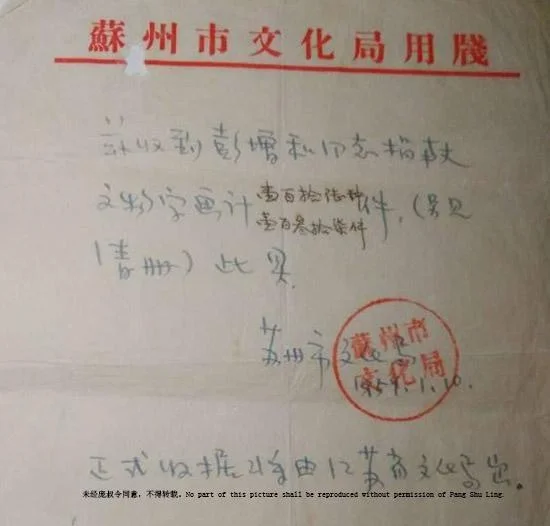 蘇州市文化局用牋
兹收到彭增和同志捐献
文物字画计
壹百拾伍种
壹百叁拾柒件
件,(另见
清册)此具.
苏州市文化局
蘇州市
文化局
1959.1.10.
正式收据将由江苏省文化局出。
未经庞叔令同意,不得转载。No part of this picture shall be reproduced without permission of Pang Shu Ling.